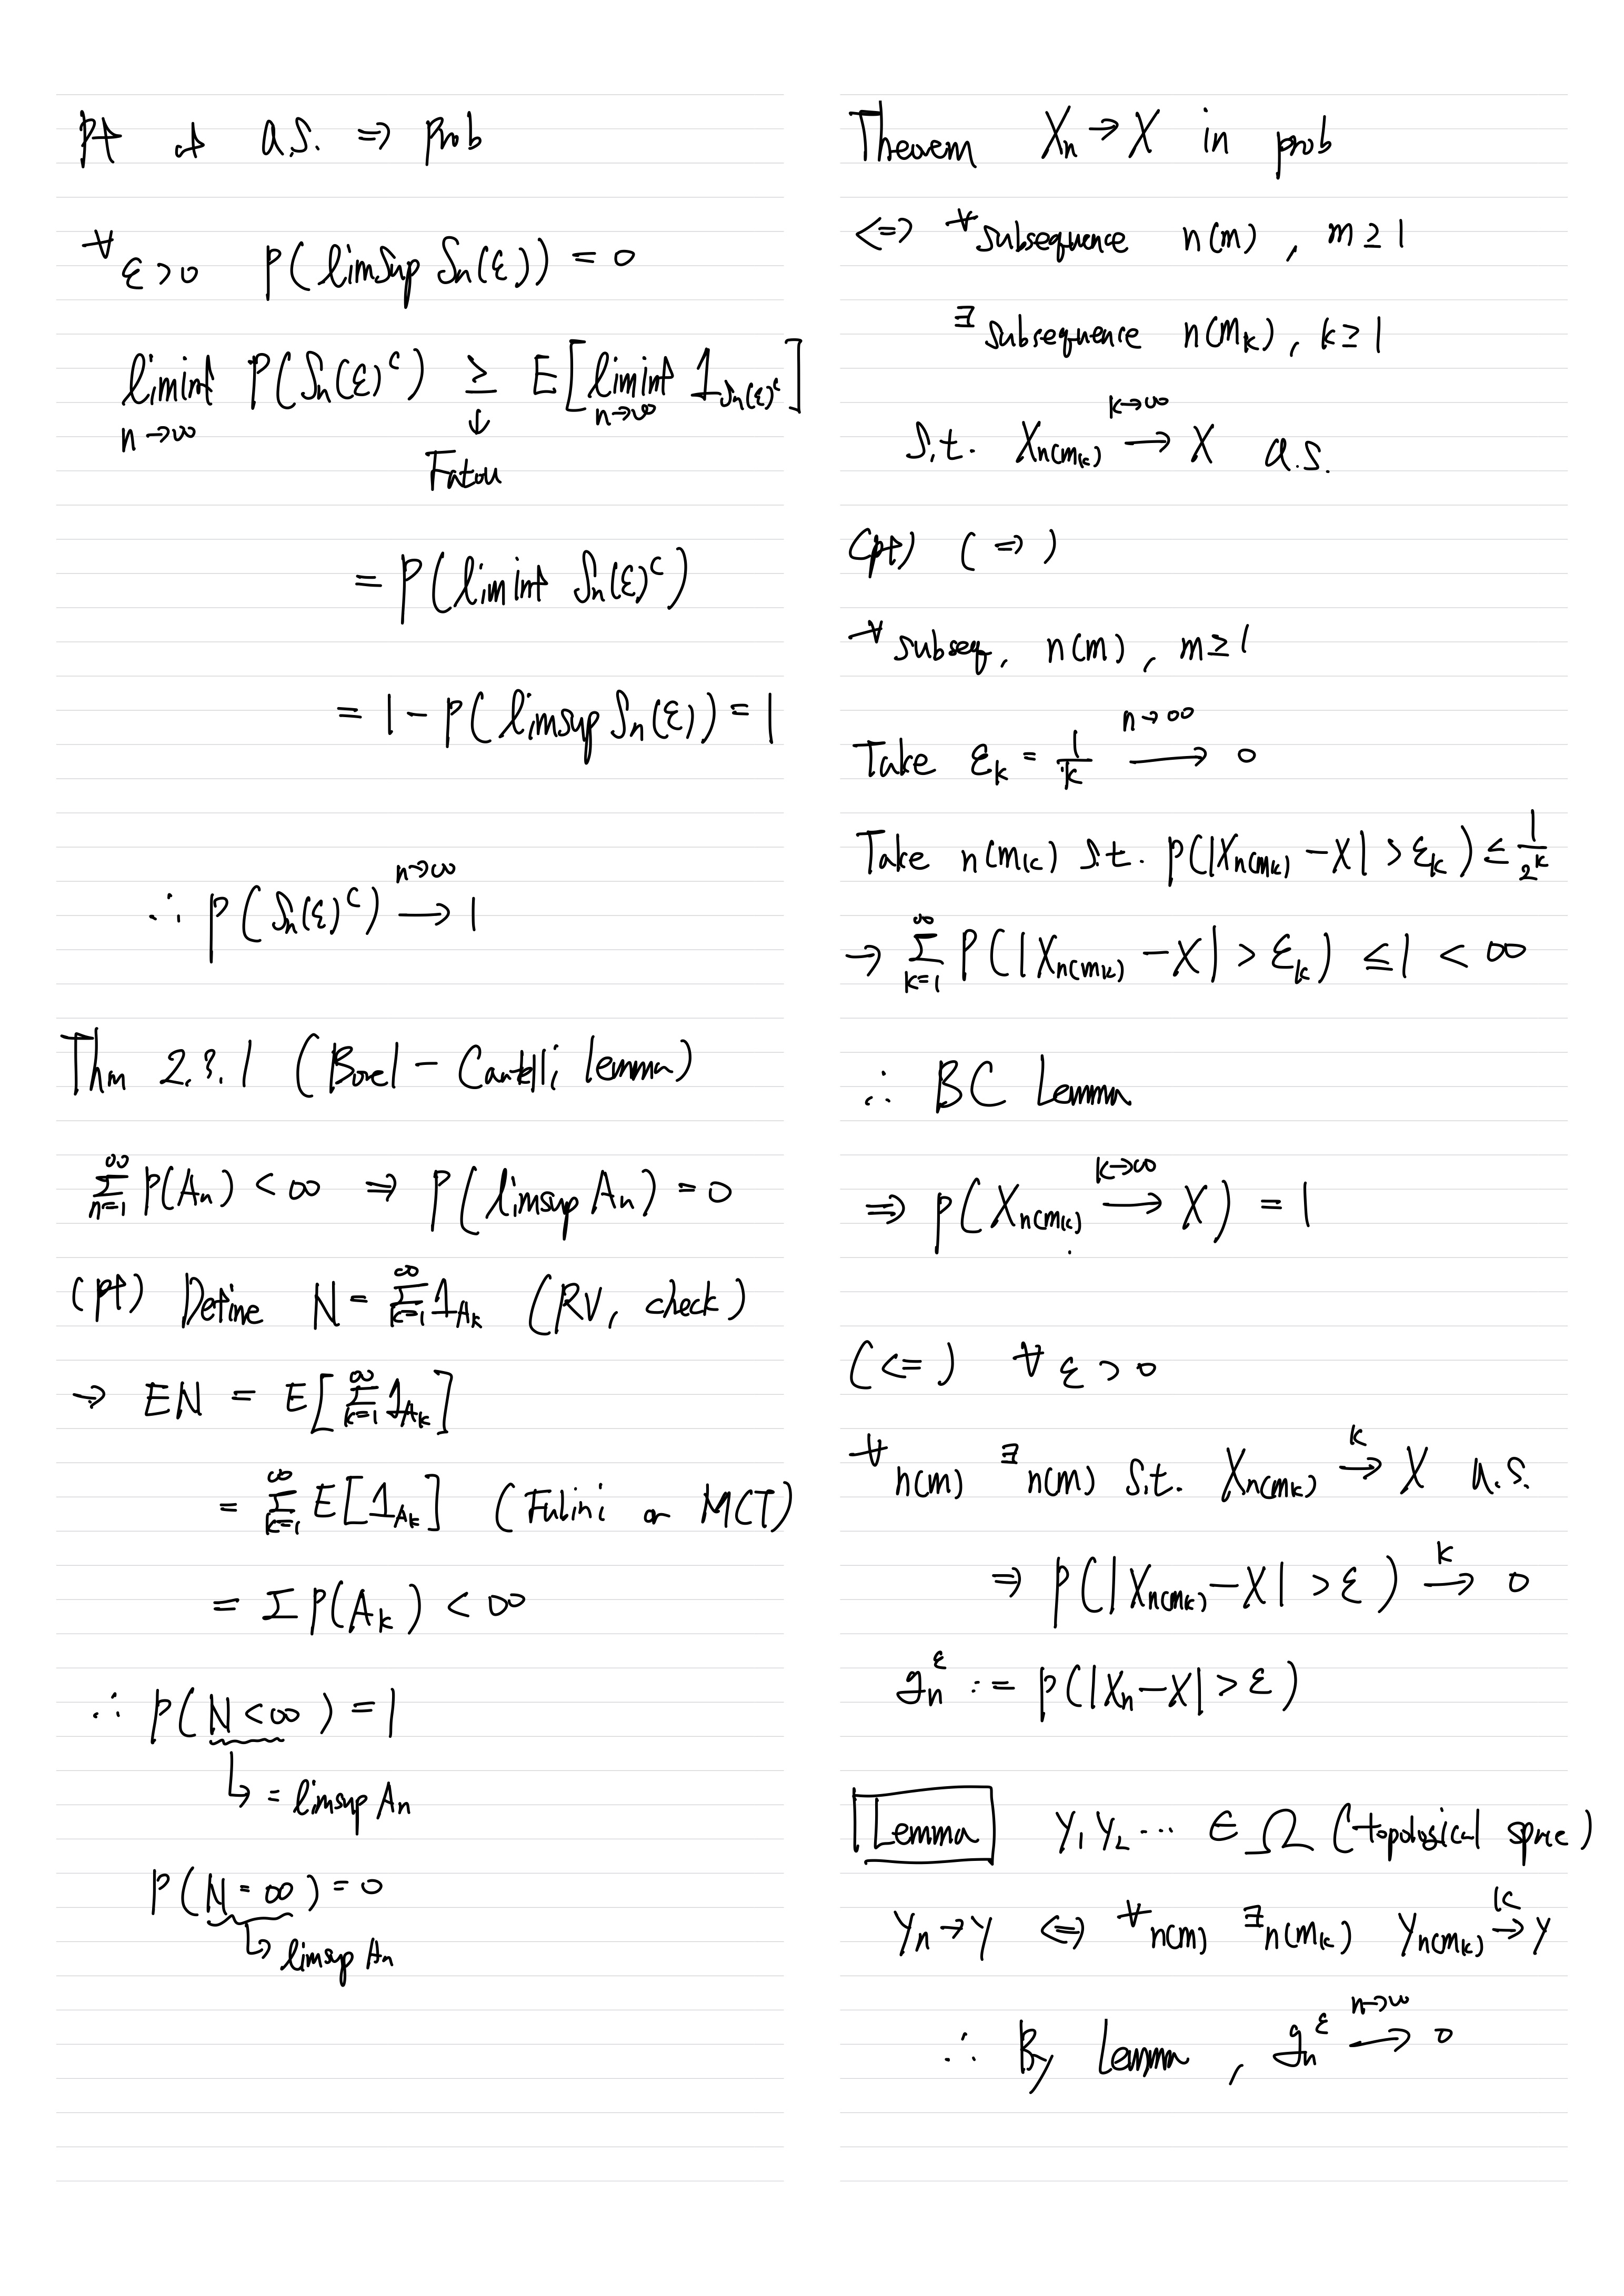 pf of a.s. ⇒ prob
∀ε>0 P(limsup Sn(ε)) = 0
liminf P(Sn(ε)^c) ≥ E[liminf 1_{Sn(ε)^c}]
n→∞ ↓ n→∞
Fatou
= P(liminf Sn(ε)^c)
= 1 − P(limsup Sn(ε)) = 1
n→∞
∴ P(Sn(ε)^c) → 1
Thm 2.3.1 (Borel − Cantelli lemma)
Σ_{n=1}^∞ P(An) < ∞ ⇒ P(limsup An) = 0
(pf) Define N = Σ_{k=1}^∞ 1_{Ak} (RV, check)
→ EN = E[Σ_{k=1}^∞ 1_{Ak}]
= Σ_{k=1}^∞ E[1_{Ak}] (Fubini or MCT)
= Σ P(Ak) < ∞
∴ P(N<∞) = 1
↳ = limsup An
P(N=∞) = 0
↳ limsup An
Theorem Xn → X in prob
<=> ∀subsequence n(m), m ≥ 1
∃subsequence n(mk), k ≥ 1
k→∞
s.t. X_{n(mk)} → X a.s.
(pf) (⇒)
∀subseq, n(m), m ≥ 1
n→∞
Take εk = 1/k → 0
Take n(mk) s.t. P(|X_{n(mk)} − X| > εk) ≤ 1/2^k
→ Σ_{k=1}^∞ P(|X_{n(mk)} − X| > εk) ≤ 1 < ∞
∴ BC Lemma
k→∞
⇒ P(X_{n(mk)} → X) = 1
(<=) ∀ε > 0
k
∀n(m) ∃n(m) s.t. X_{n(mk)} → X a.s.
k
⇒ P(|X_{n(mk)} − X| > ε) → 0
g_n^ε := P(|Xn − X| > ε)
Lemma Y1 Y2 ... ∈ Ω (topological space)
k
Yn → Y <=> ∀n(m) ∃n(mk) Y_{n(mk)} → Y
n→∞
∴ By Lemma, g_n^ε → 0